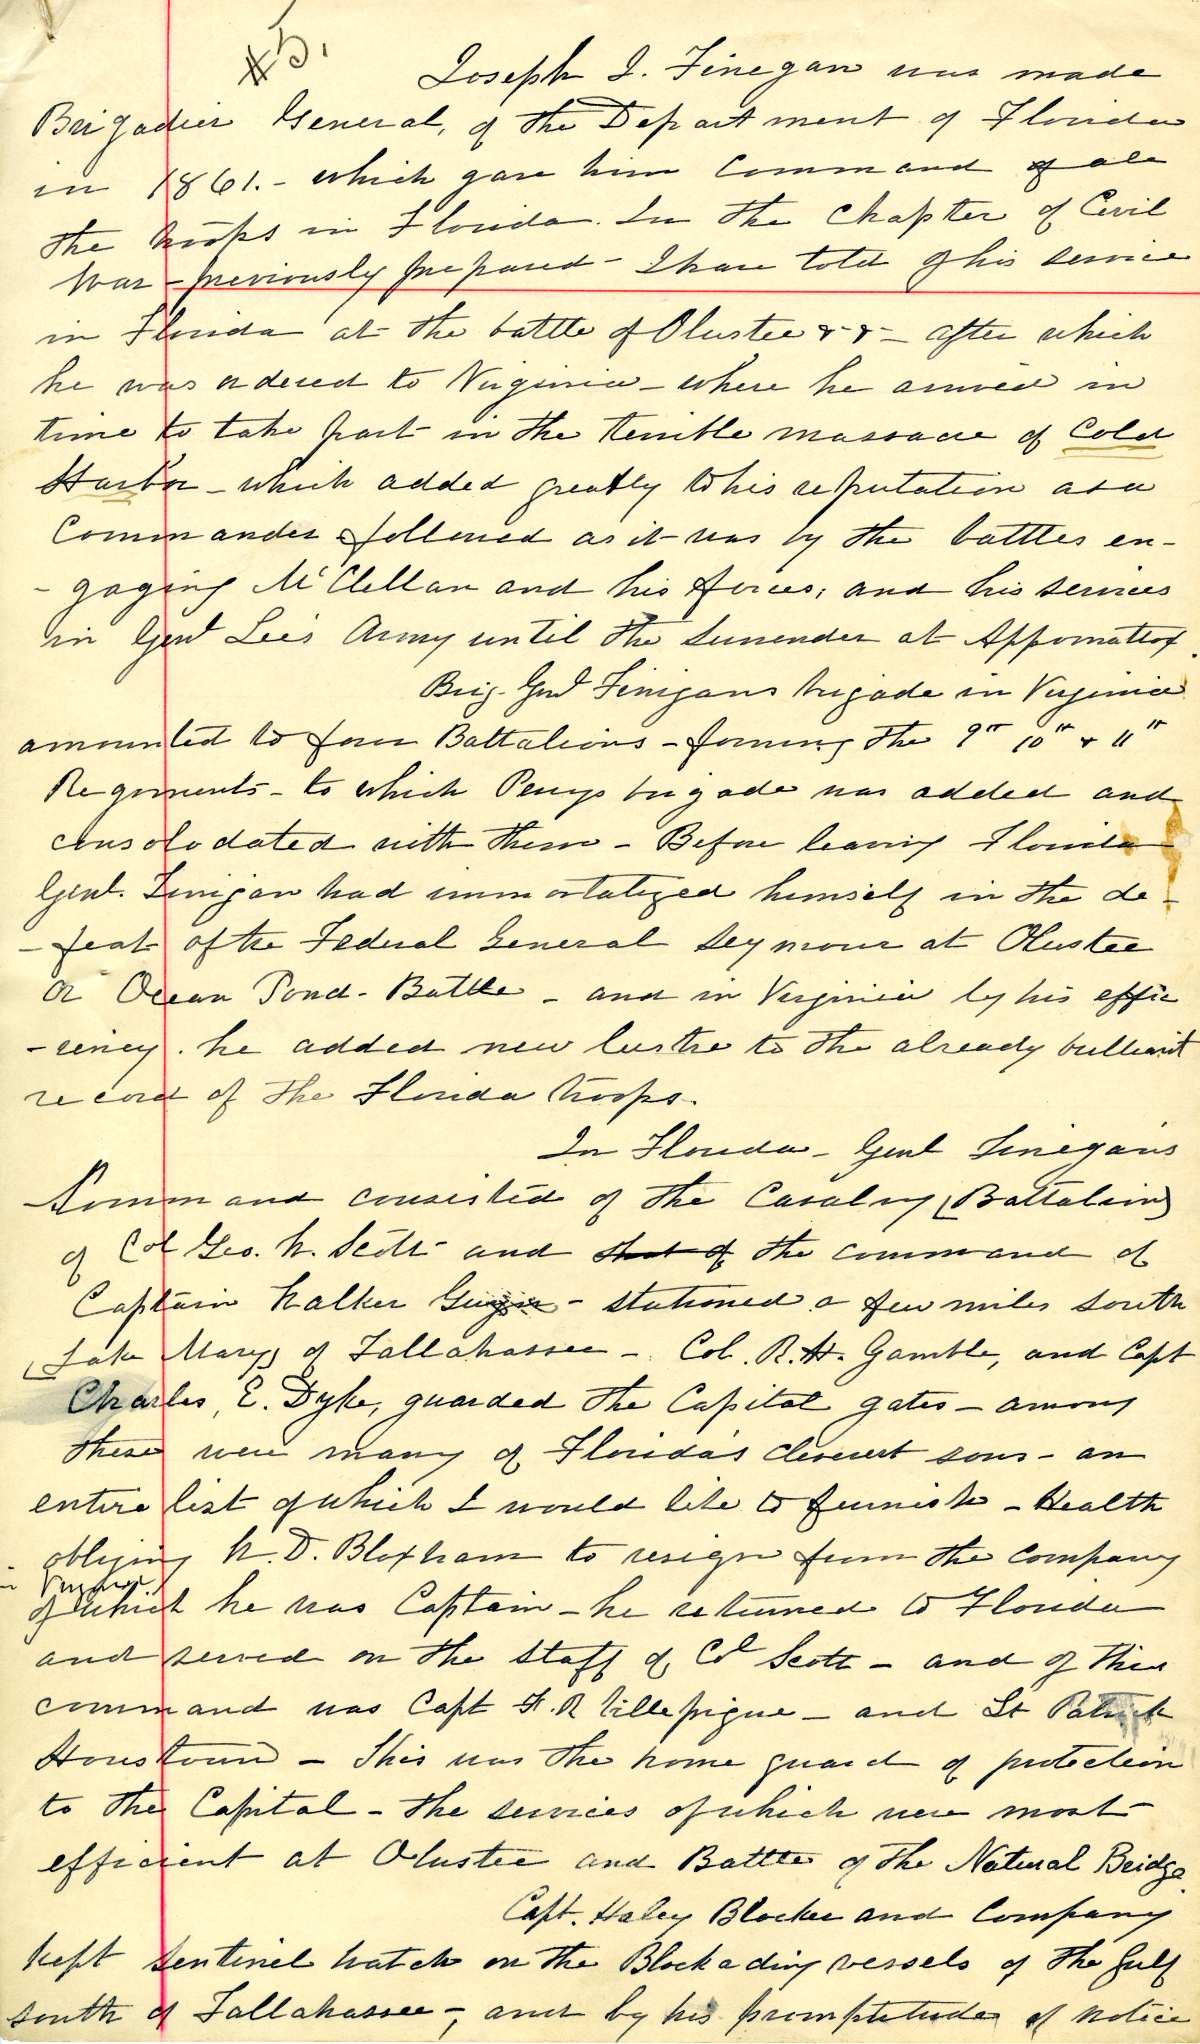 #5.
Joseph J. Finegan was made
Brigadier General, of the Department of Florida
in 1861. - which gave him command of all
the troops in Florida. In the Chapter of Civil
War - previously prepared - I have told of his service
in Florida at the battle of Olustee & & - after which
he was ordered to Virginia - where he arrived in
time to take part in the terrible massacre of Cold
Harbor - which added greatly to his reputation as a
Commander followed as it was by the battles en-
- gaging McClellan and his forces; and his services
in Genl Lee's Army until the surrender at Appomattox.
Brig. Genl Finigans brigade in Virginia
amounted to four Battalions - forming the 9th 10th & 11th
Regiments - to which Perrys brigade was added and
consolodated with them - Before leaving Florida
Genl. Finigan had immortalized himself in the de-
- feat of the Federal General Seymour at Olustee
or Ocean Pond - Battle - and in Virginia by his effic
- ciency. he added new lustre to the already brilliant
record of the Florida troops.
In Florida - Genl Finegans
Command consisted of the Cavalry (Battalion)
of Col Geo. W. Scott - and that of the command of
Captain Walker - stationed a few miles south
(Lake Mary) of Tallahassee - Col. R. H. Gamble, and Capt
Charles, E. Dyke, guarded the Capital gates - among
these were many of Florida's cleverest sons - an
entire list of which I would like to furnish - Health
obliging W. D. Bloxham to resign from the company
in Virginia
of which he was Captain - he returned to Florida
and served on the staff of Col Scott - and of this
command was Capt F. R Villepigue - and Lt Patrick
Houstoun - This was the home guard of protection
to the Capital - the services of which were most
efficient at Olustee and Battle of the Natural Bridge.
Capt. Haley Blocker and Company
kept sentinel watch on the Blockading vessels of the Gulf
south of Tallahassee -, and by his promptitude of notice